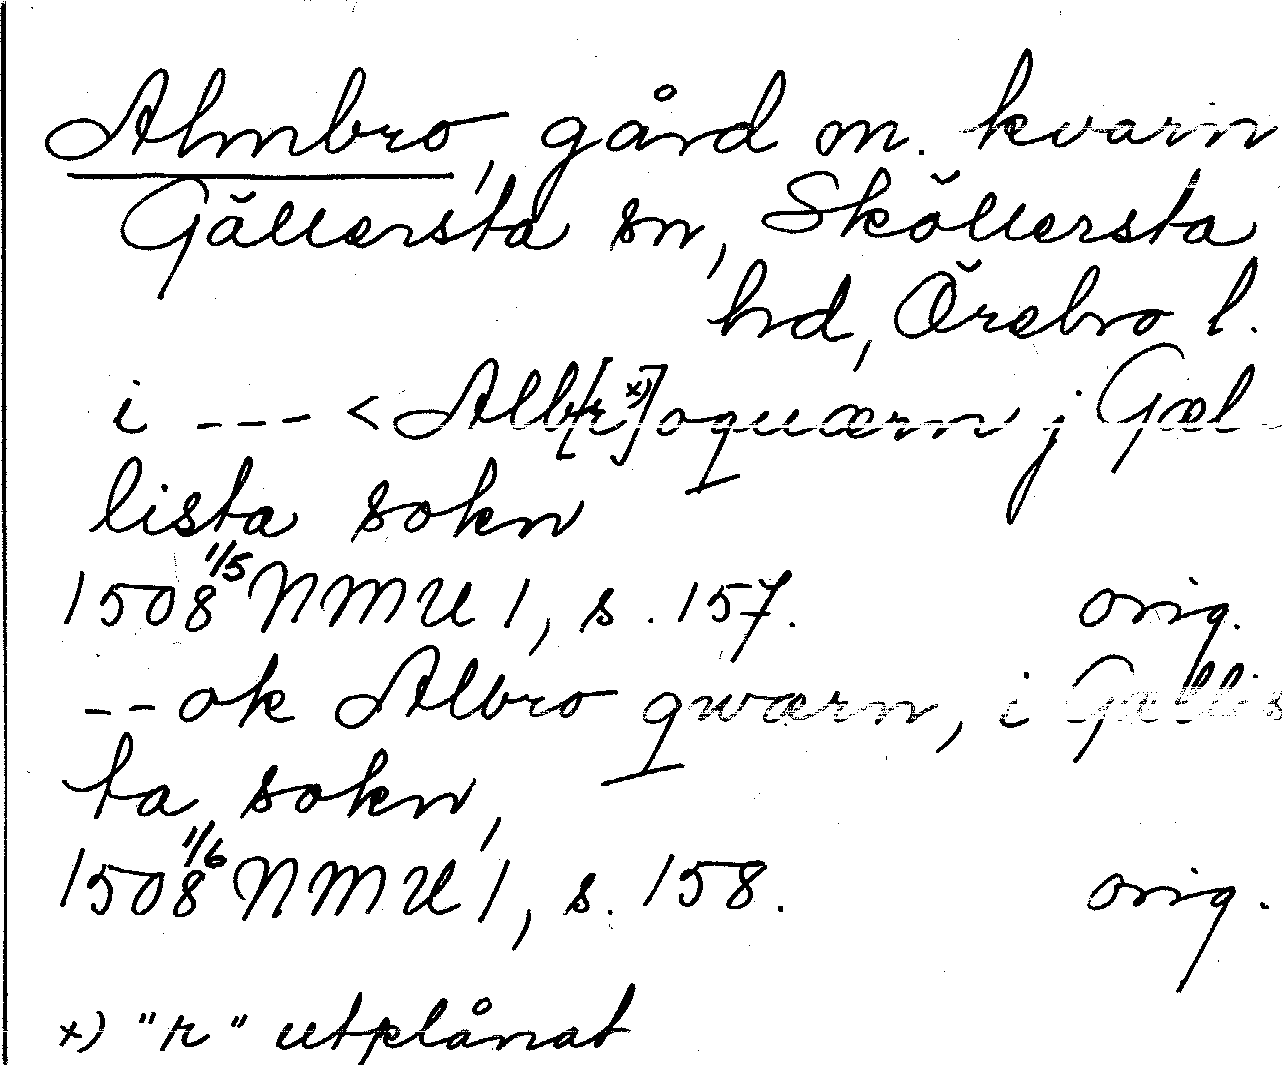 Almbro, gård m. kvarn
Gällersta sn, Sköllersta
hd, Örebro l.
i --- < Alb[r x)]oquærn j Gæl
lista sokn
1508 1/5 NMU 1, s. 157. orig.
-- ok Albro qwærn, i Gællis
ta sokn,
1508 1/6 NMU 1, s. 158. orig.
x) "r" utplånat